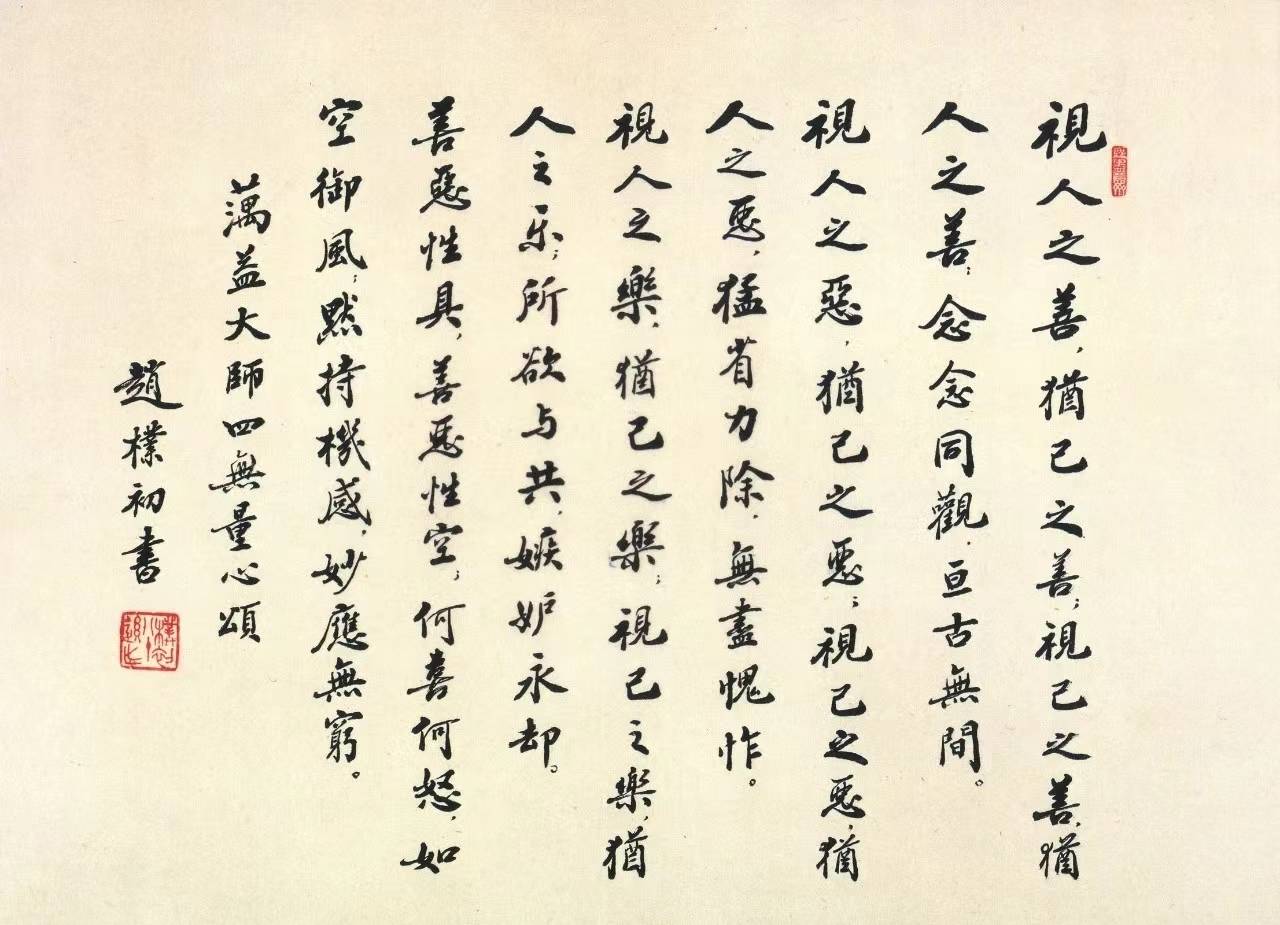 視人之善，猶己之善；視己之善，猶
人之善；念念同觀，亘古無間。
視人之惡，猶己之惡；視己之惡，猶
人之惡，猛省力除，無盡愧怍。
視人之樂，猶己之樂；視己之樂，猶
人之乐；所欲与共，嫉妒永却。
善惡性具，善惡性空；何喜何怒，如
空御風；默持機感，妙應無窮。
蕅益大師四無量心頌
趙樸初書